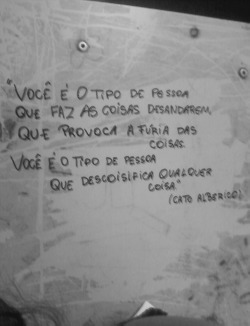 "VOCÊ É O TIPO DE PESSOA
QUE FAZ AS COISAS DESANDAREM,
QUE PROVOCA A FÚRIA DAS
COISAS.
VOCÊ É O TIPO DE PESSOA
QUE DESCOISIFICA QUALQUER
COISA"
(CAIO ALBERICO)